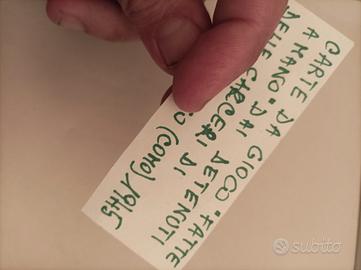 CARTE DA GIOCO "FATTE
A MANO" DAI
DELLE CARCERI DETENUTI
DI
(COMO) 1945
subito